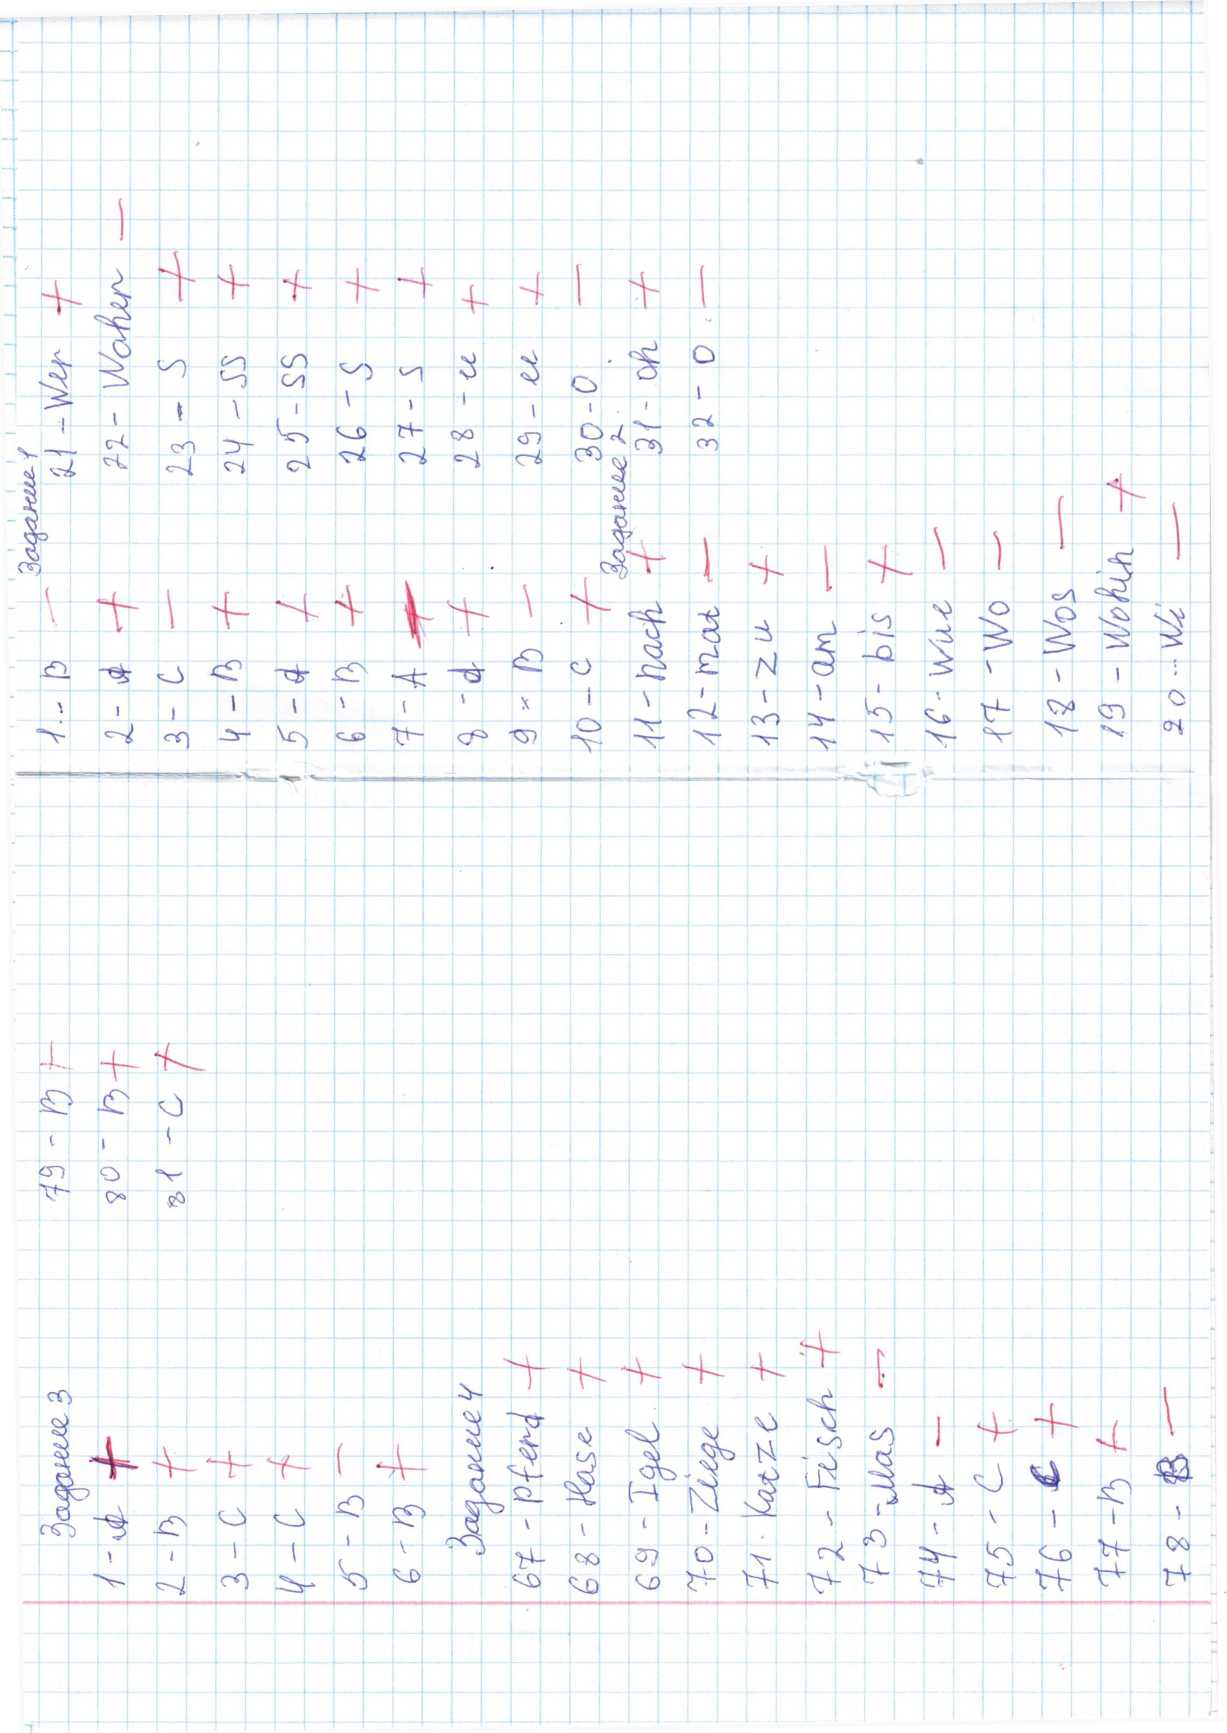 Задание 3
1 - A +
2 - B +
3 - C +
4 - C +
5 - B -
6 - B +
Задание 4
67 - Pferd +
68 - Hase +
69 - Igel +
70 - Ziege +
71. Katze +
72 - Fisch +
73 - Mas -
74 - A -
75 - C +
76 - C +
77 - B +
78 - B -
79 - B +
80 - B +
81 - C +
Задание 1
1 - B -
2 - A +
3 - C -
4 - B +
5 - A +
6 - B +
7 - A +
8 - A +
9 - B -
10 - C +
Задание 2
11 - nach +
12 - mat -
13 - zu +
14 - am -
15 - bis +
16 - Wue -
17 - Wo -
18 - Wos -
19 - Wohin +
20 - Wi -
21 - Wer +
22 - Waher -
23 - s +
24 - ss +
25 - ss +
26 - s +
27 - s +
28 - u +
29 - u +
30 - O -
31 - oh +
32 - O -